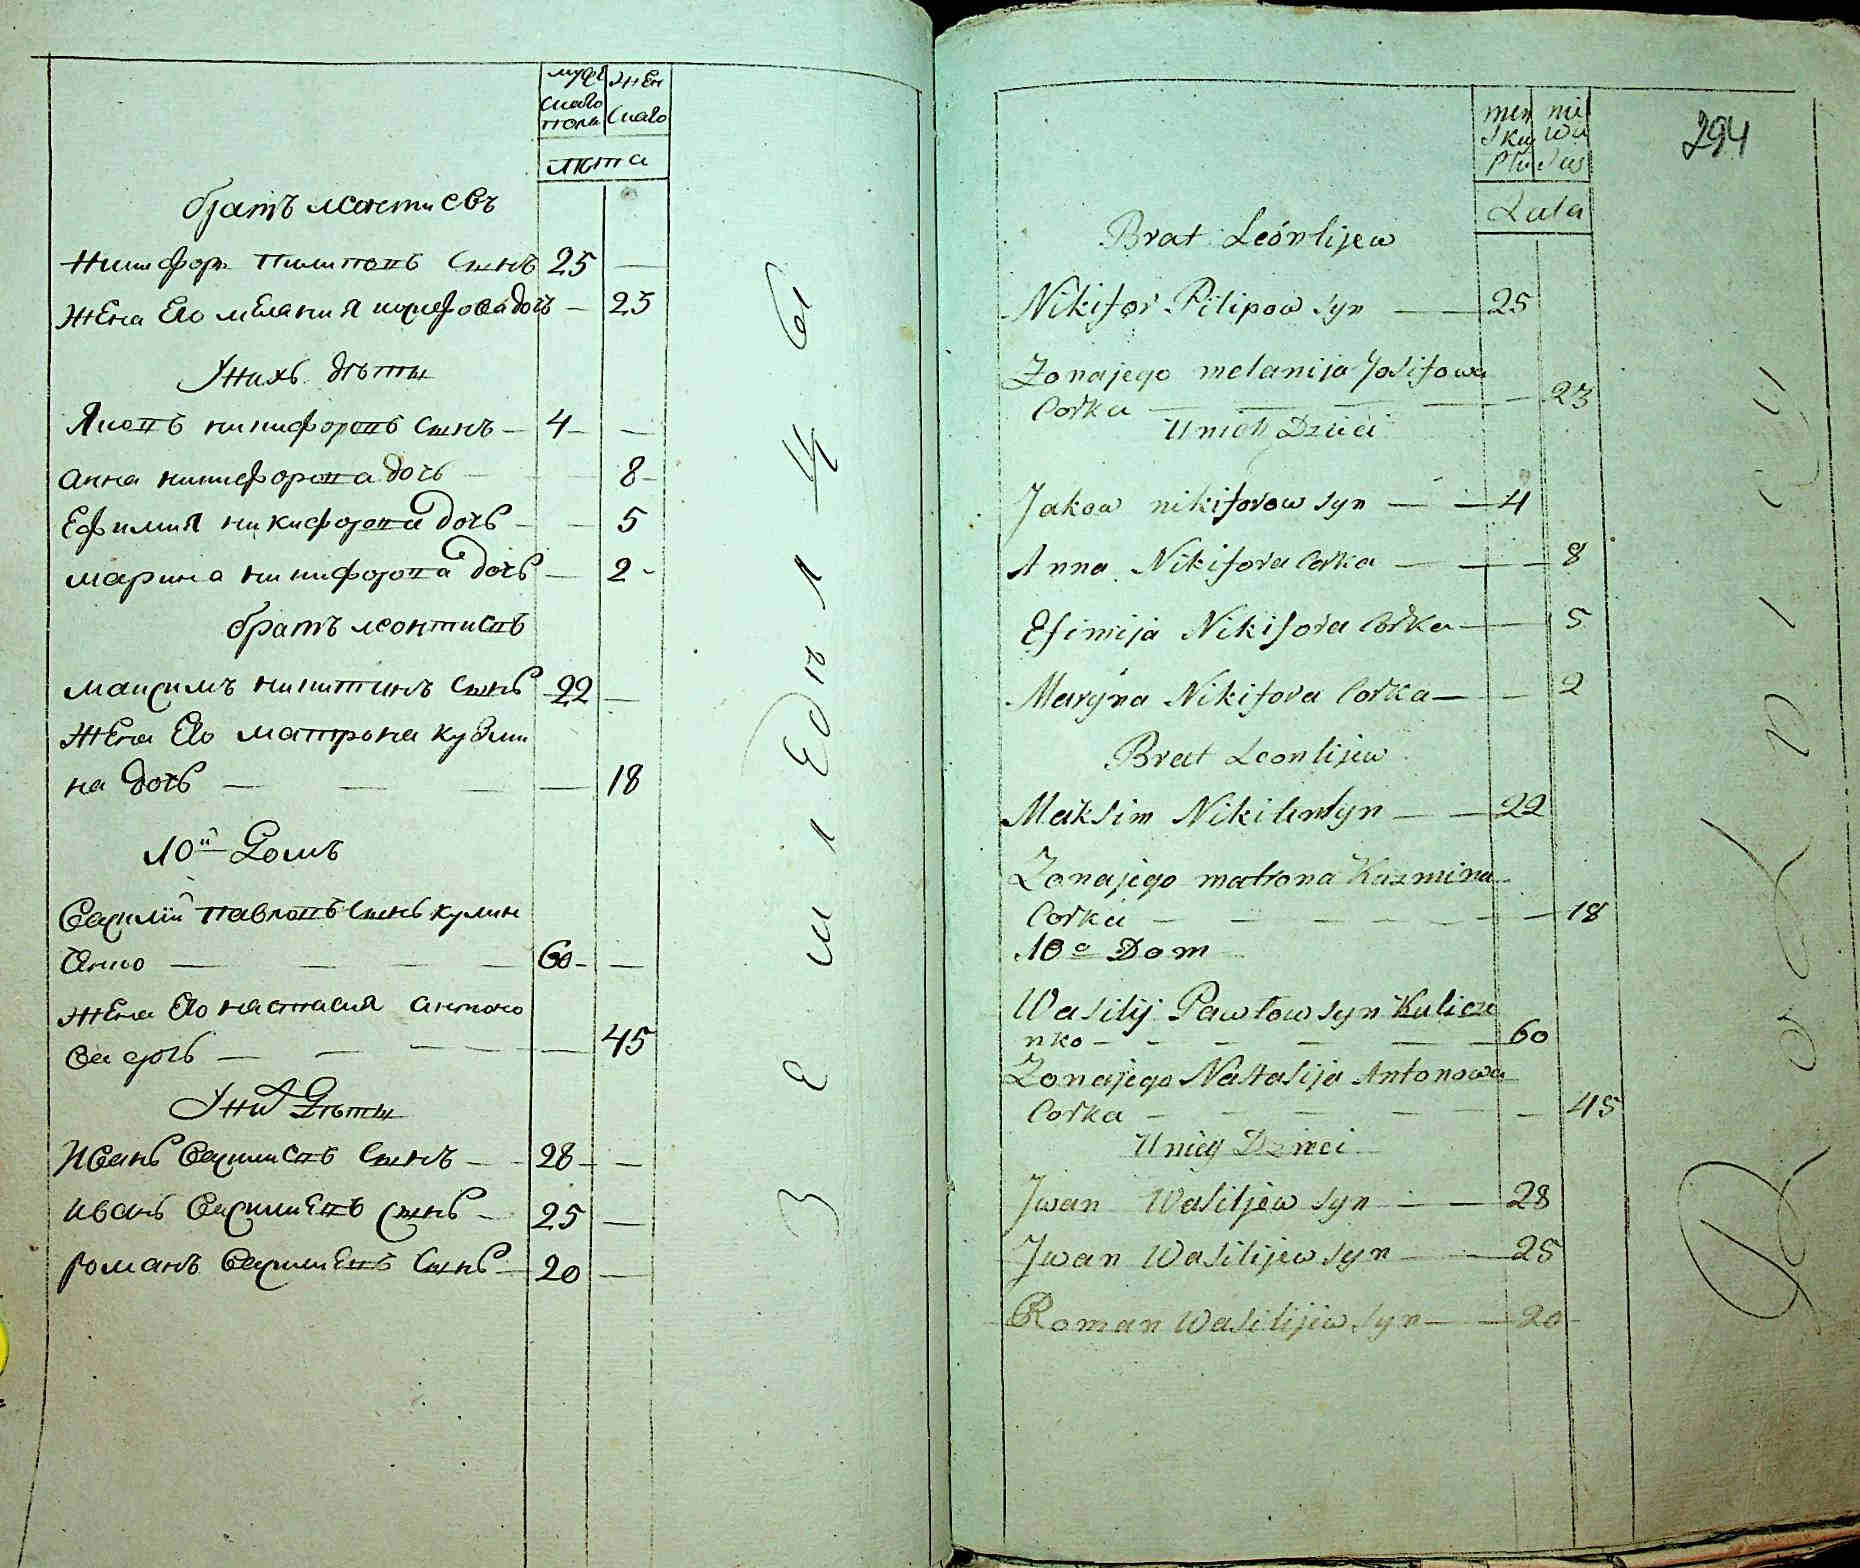 муже жен
скаго скаго
пола
лѣта
братъ леонтиевъ
Никифоръ Пилиповъ сынъ 25 —
жена Его мелания иосифова дочъ — 23
У нихъ дѣти
Яковъ никифоровъ сынъ — 4 — —
анна никифорова дочъ — — 8 -
Ефимия никифорова дочъ — — 5
марина никифорова дочъ — 2 -
братъ леонтиевъ
максимъ никитинъ сынъ 22 —
жена Его матрона кузми
на дочъ — — — — 18
10й Домъ
Василий Павловъ сынъ
60 - —
жена Его настасия антоно
ва дочь — — — — 45
У них Дѣти
Иванъ Василиевъ сынъ — - 28 - —
иванъ Василиевъ сынъ — 25 —
романъ Василиевъ сынъ — 20 —
294
Lata
Brat Leóntijew
Nikifor Pilipow syn — — 25
Zonajego melanija Josifowa
Corka — — — — 23
Unich Dzieci
Jakow nikiforow syn — — 4
Anna Nikifora Corka — — — 8
Efimija Nikifora Corka — — 5
Maryna Nikifora Corka — — 2
Brat Leontijew
Maksim Nikitin syn — — 22
Zonajego matrona Kuzmina
Corka — — — — — — 18
10 a Dom
Wasilij Pawłow syn Kulicze
nko — - — — — — 60
Zonajego Nastasija Antonowa
Corka — — — — — 45
Unich Dzieci
Jwan Wasiljew syn — — 28
Jwan Wasilijew syn — — 25
Roman Wasilijew syn — — 20 -